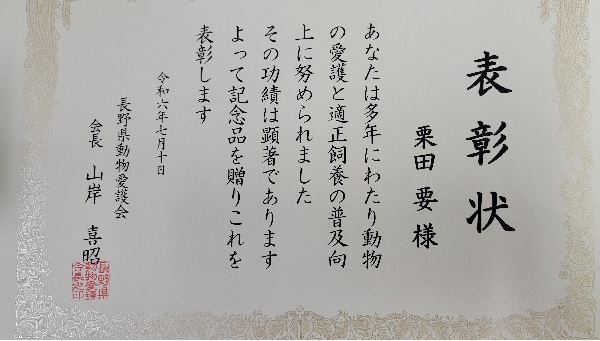 表彰状
栗田 要 様
あなたは多年にわたり動物
の愛護と適正飼養の普及向
上に努められました
その功績は顕著であります
よって記念品を贈りこれを
表彰します
令和六年七月十日
長野県動物愛護会
会長 山岸 喜昭
長野県
動物愛護
会長之印